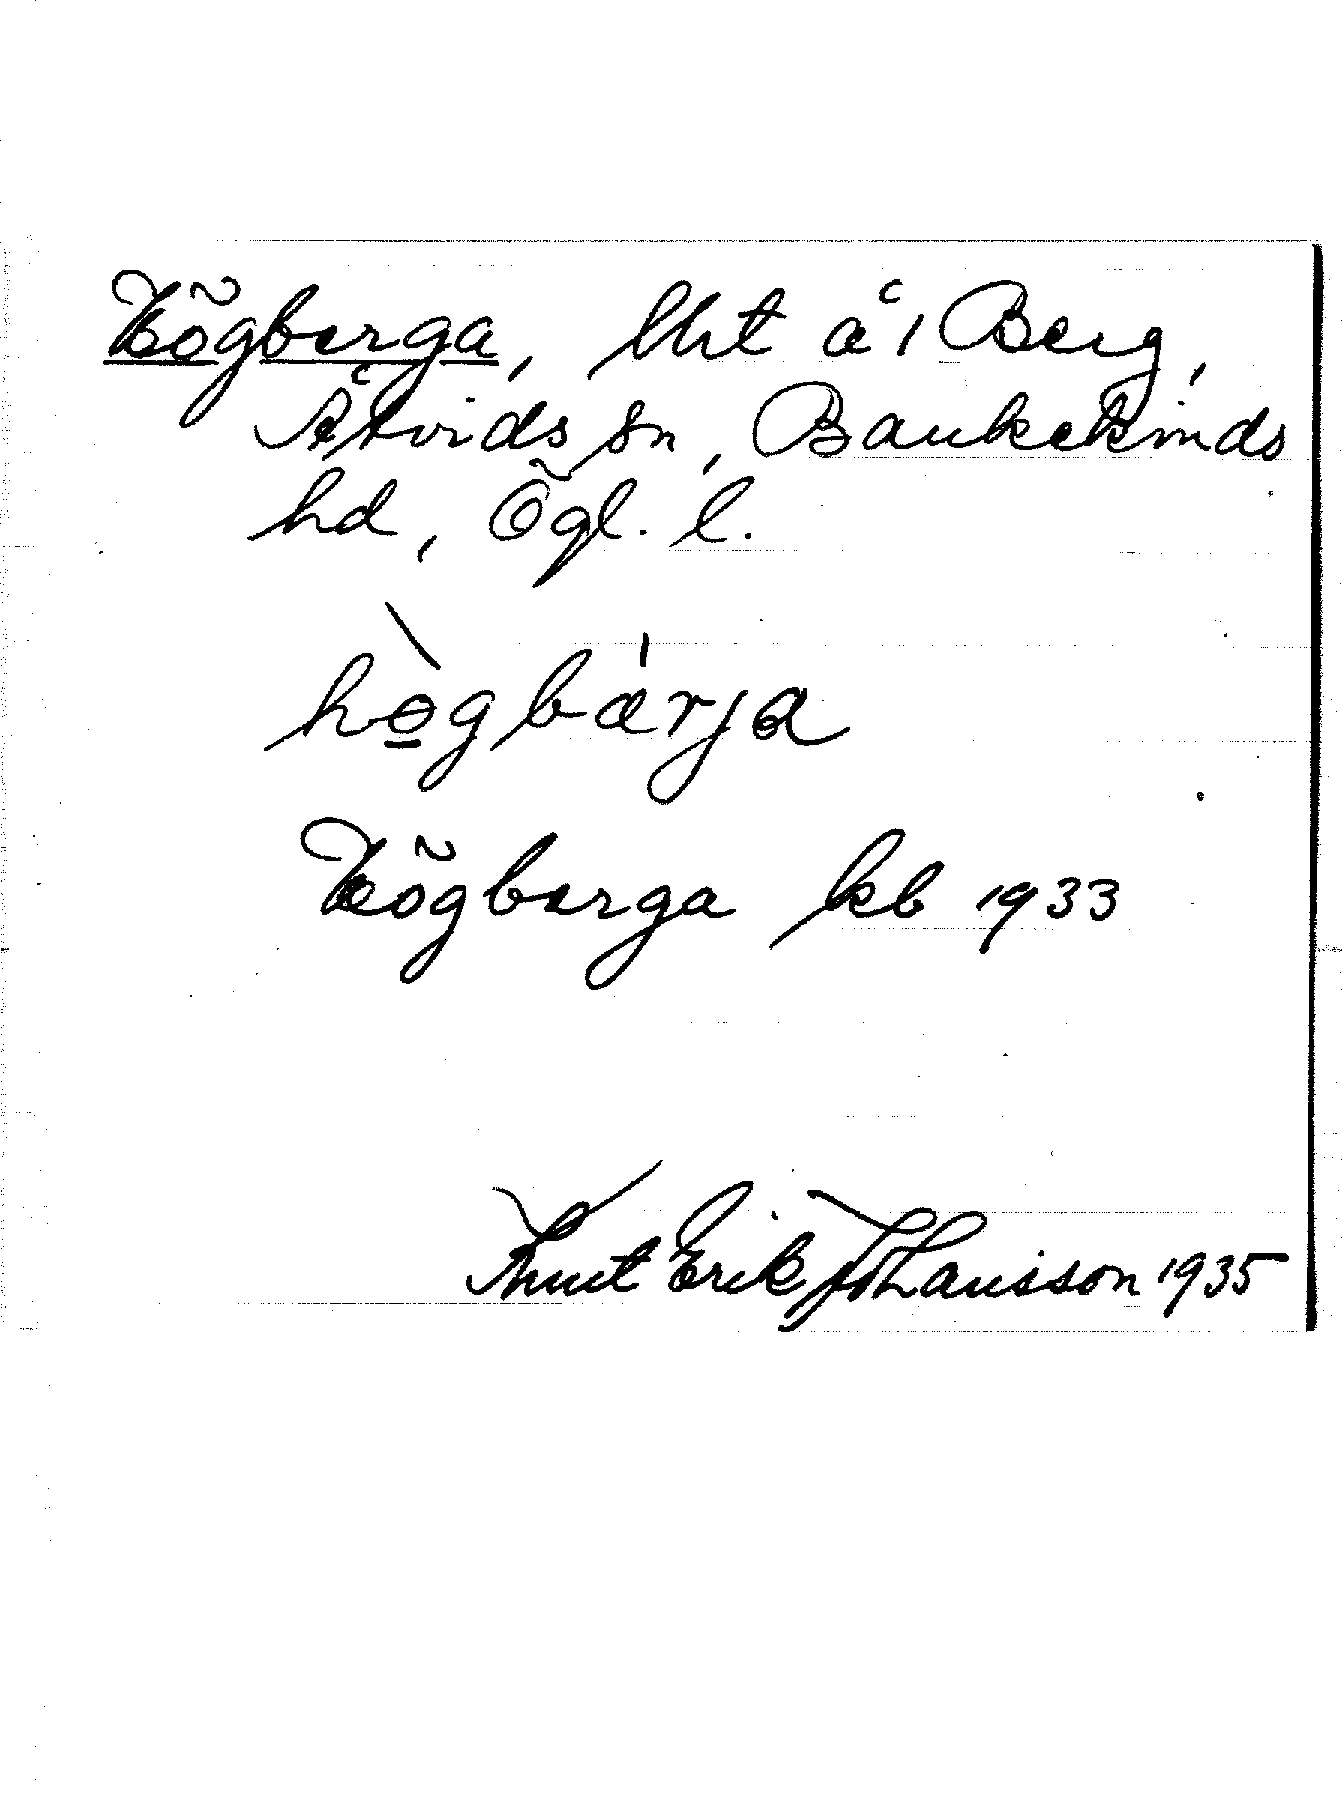 Högberga, lht å 1 Berg,
Åtvids sn, Bankekinds
hd, Ögl. l.
hø̱̀gbǽrja
Högberga kb 1933
Knut Erik Johansson 1935